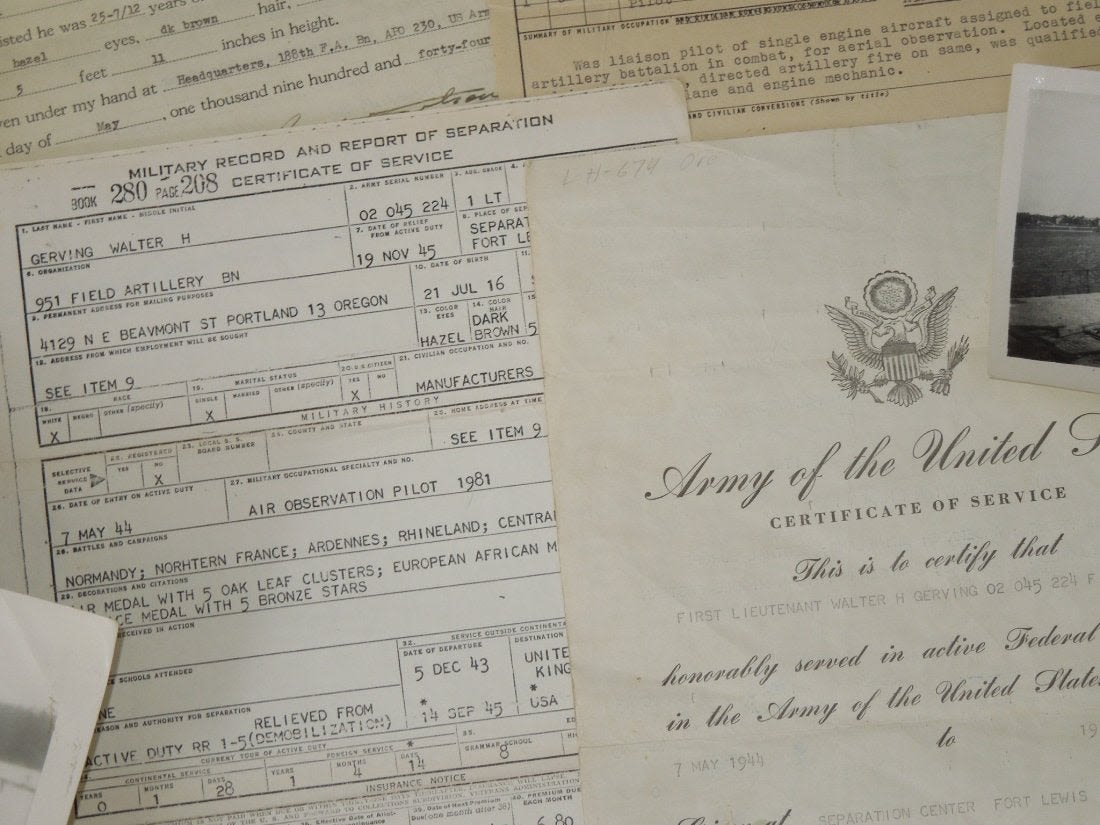 isted he was 25-7/12 years o
hazel eyes, dk brown hair,
5 feet 11 inches in height.
ven under my hand at Headquarters, 186th F.A. Bn, APO 230, US Arm
day of May, one thousand nine hundred and forty-four
Pilot
SUMMARY OF MILITARY OCCUPATION
Was liaison pilot of single engine aircraft assigned to fiel
artillery battalion in combat, for aerial observation. Located e
, directed artillery fire on same, was qualified
lane and engine mechanic.
AND CIVILIAN CONVERSIONS (Shown by title)
MILITARY RECORD AND REPORT OF SEPARATION
CERTIFICATE OF SERVICE
BOOK 280 PAGE 208
1. LAST NAME - FIRST NAME - MIDDLE INITIAL
GERVING WALTER H
2. ARMY SERIAL NUMBER
02 045 224
3. AUS. GRADE
1 LT
6. ORGANIZATION
951 FIELD ARTILLERY BN
7. DATE OF RELIEF FROM ACTIVE DUTY
19 NOV 45
8. PLACE OF SEP
SEPARAT
FORT LE
9. PERMANENT ADDRESS FOR MAILING PURPOSES
4129 N E BEAVMONT ST PORTLAND 13 OREGON
10. DATE OF BIRTH
21 JUL 16
11.
12. ADDRESS FROM WHICH EMPLOYMENT WILL BE SOUGHT
SEE ITEM 9
13. COLOR EYES
HAZEL
14. COLOR HAIR
DARK
BROWN
15
5
18. RACE
WHITE NEGRO OTHER (specify)
X
19. MARITAL STATUS
SINGLE MARRIED OTHER (specify)
X
20. U.S. CITIZEN
YES NO
X
21. CIVILIAN OCCUPATION AND NO.
MANUFACTURERS
MILITARY HISTORY
SELECTIVE SERVICE DATA
22. REGISTERED
YES NO
X
23. LOCAL S. S. BOARD NUMBER
24. COUNTY AND STATE
25. HOME ADDRESS AT TIME
SEE ITEM 9
26. DATE OF ENTRY ON ACTIVE DUTY
7 MAY 44
27. MILITARY OCCUPATIONAL SPECIALTY AND NO.
AIR OBSERVATION PILOT 1981
28. BATTLES AND CAMPAIGNS
NORMANDY; NORHTERN FRANCE; ARDENNES; RHINELAND; CENTRAL
29. DECORATIONS AND CITATIONS
AIR MEDAL WITH 5 OAK LEAF CLUSTERS; EUROPEAN AFRICAN M
CE MEDAL WITH 5 BRONZE STARS
RECEIVED IN ACTION
CE SCHOOLS ATTENDED
NE
32. SERVICE OUTSIDE CONTINENTA
DATE OF DEPARTURE
DESTINATION
5 DEC 43
UNITE
KING
*
*
14 SEP 45
USA
REASON AND AUTHORITY FOR SEPARATION
RELIEVED FROM
ACTIVE DUTY RR 1-5(DEMOBILIZATION)
CURRENT TOUR OF ACTIVE DUTY
CONTINENTAL SERVICE
FOREIGN SERVICE *
YEARS MONTHS DAYS YEARS MONTHS DAYS
0 1 28 1 4 14
35.
ED
GRAMMAR SCHOOL
8
HI
INSURANCE NOTICE
EACH MONTH
6.80
L H-674 Ore
Army of the United S
CERTIFICATE OF SERVICE
This is to certify that
FIRST LIEUTENANT WALTER H GERVING 02 045 224 F
honorably served in active Federal
in the Army of the United States
to
7 MAY 1944
19
Given at SEPARATION CENTER FORT LEWIS